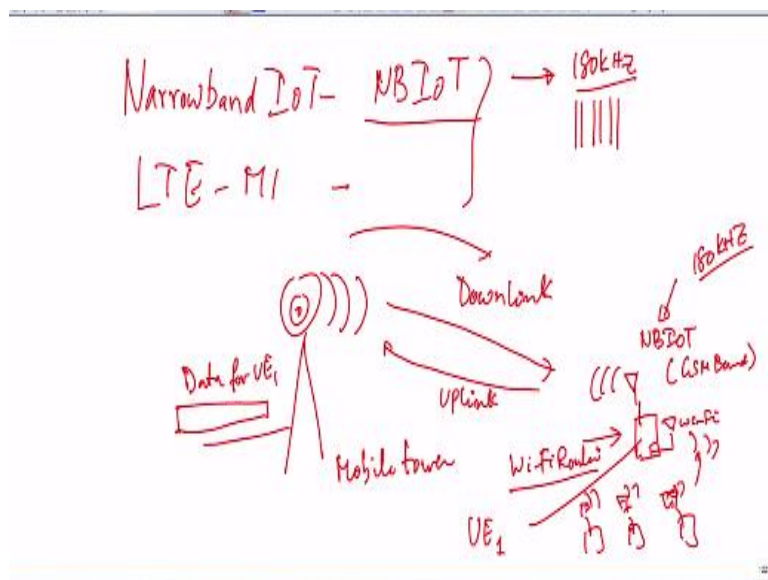 Narrowband IoT - NBIoT
180kHz
LTE - M1 -
Downlink
180kHZ
NBIoT
(GSM Band)
Data for UE1
Uplink
Mobile tower
Wi-Fi Router
UE1